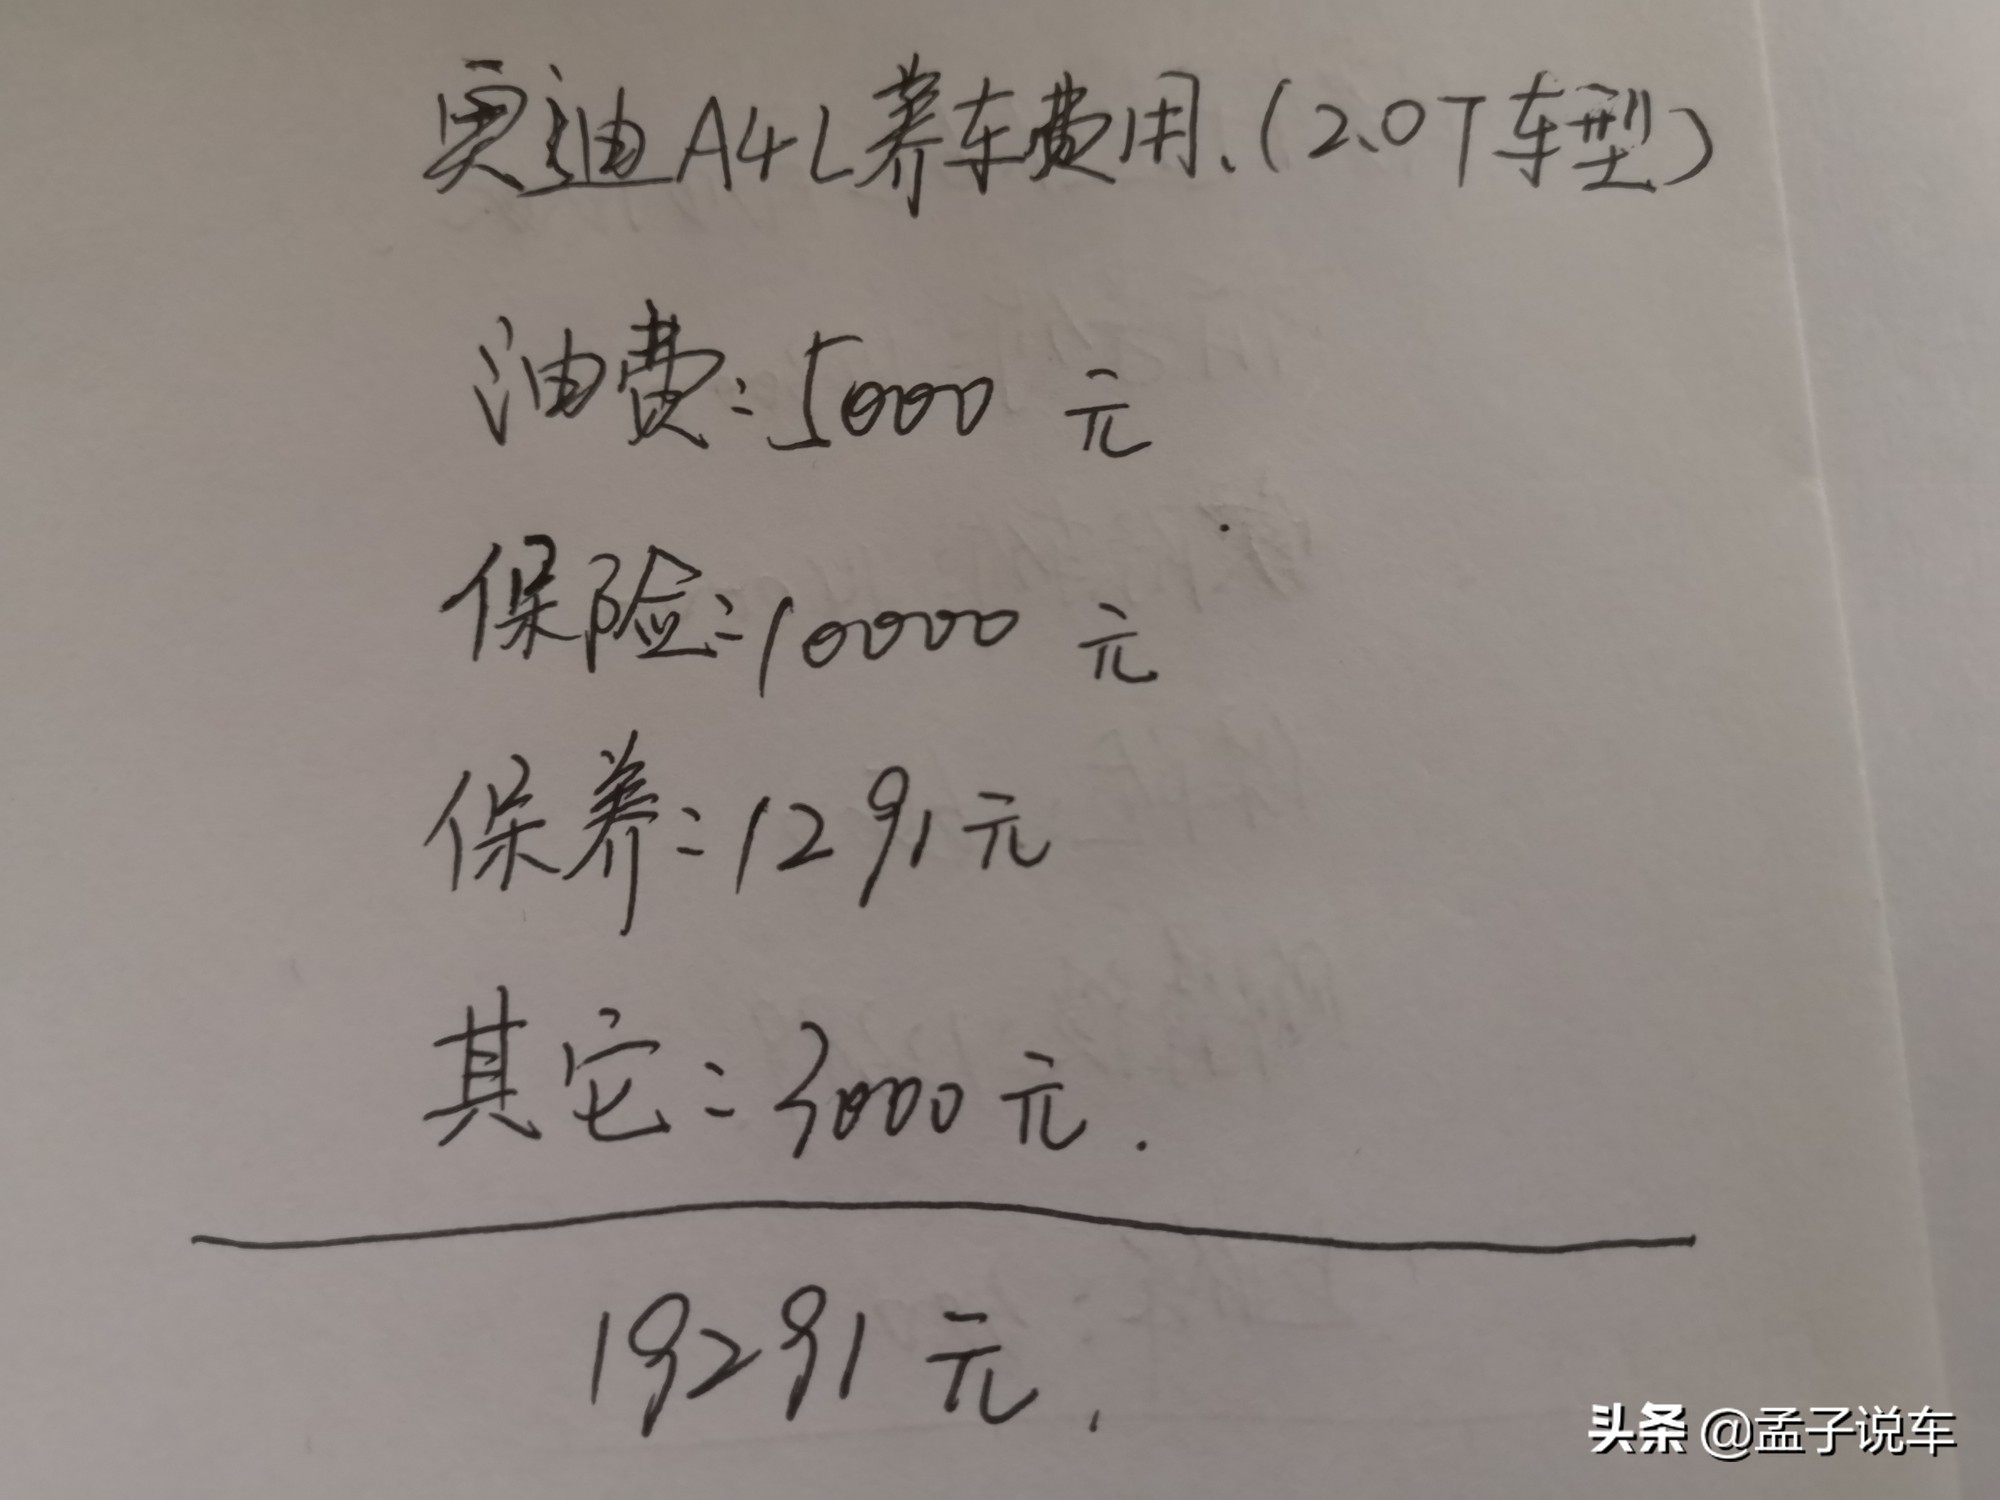 奥迪A4L养车费用.(2.0T车型)
油费:5000 元
保险:10000 元
保养:1291元
其它:3000元.
19291元.
头条 @孟子说车